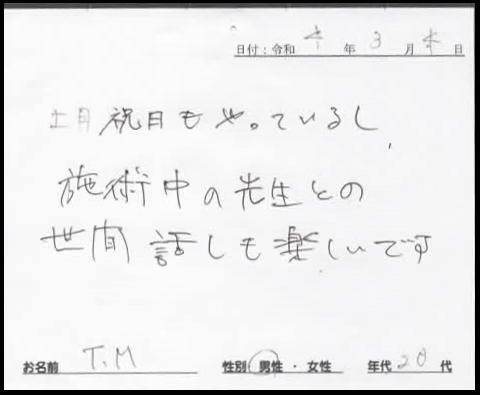 日付：令和 年 3 月 日
土日祝日もやっているし、
施術中の先生との
世間話しも楽しいです
お名前 T.M 性別 男性・女性 年代 20 代